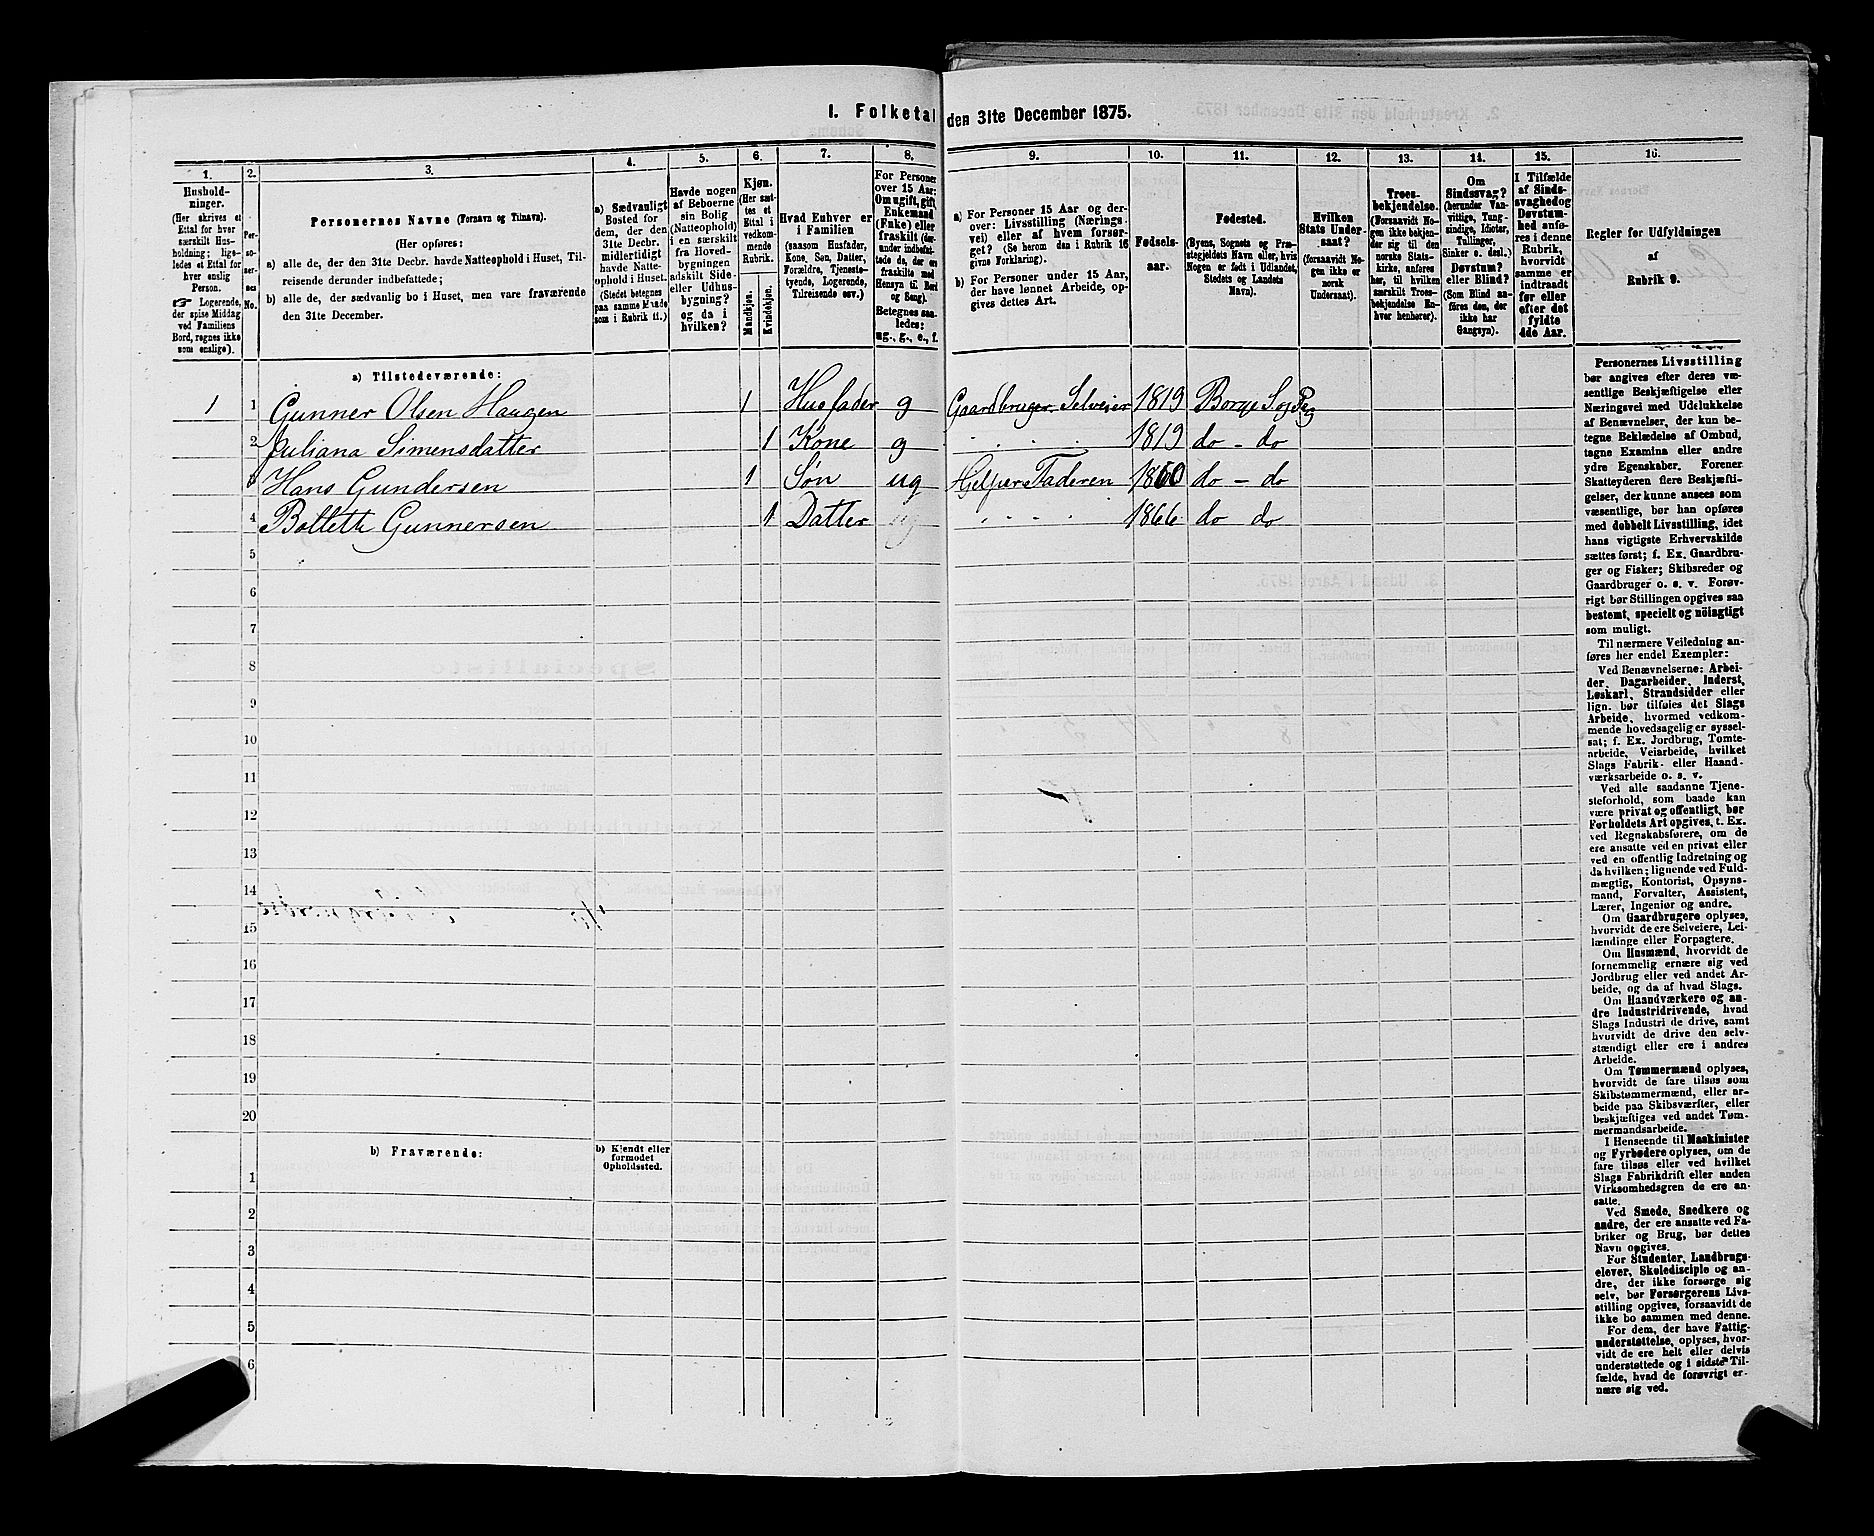 I. Folketal den 31te December 1875.
1.
2.
3.
4.
5.
6.
7.
8.
9.
10.
11.
12.
13.
14.
15.
16.
Hushold-
ninger.
(Her skrives et
Ettal for hver
særskilt Hus-
holdning; lige-
ledes et Ettal for
hver enslig
Person.
☞ Logerende,
der spise Middag
ved Familiens
Bord, regnes ikke
som enslige).
Per-
so-
ner-
nes
No.
Personernes Navne (Fornavn og Tilnavn).
(Her opføres:
a) alle de, der den 31te Decbr. havde Natteophold i Huset, Til-
reisende derunder indbefattede;
b) alle de, der sædvanlig bo i Huset, men vare fraværende
den 31te December.
a) Sædvanligt
Bosted for
dem, der den
31te Decbr.
midlertidigt
havde Natte-
ophold i Huset.
(Stedet betegnes
paa samme Maade
som i Rubrik 11.)
Havde nogen
af Beboerne
sin Bolig
(Natteophold)
i en særskilt
fra Hoved-
bygningen
adskilt Side-
eller Udhus-
bygning?
og da i
hvilken?
Kjøn.
(Her sæt-
tes et
Ettal i
vedkom-
mende
Rubrik.
Mandkjøn.
Kvindekjøn.
Hvad Enhver er
i Familien
(saasom Husfader,
Kone, Søn, Datter,
Forældre, Tjeneste-
tyende, Logerende,
Tilreisende osv.)
For Personer
over 15 Aar:
Om ugift, gift,
Enkemand
(Enke) eller
fraskilt (der-
under indbefat-
tede de, der ere
fraskilte med
Hensyn til Bord
og Seng).
Betegnes saa-
ledes:
ug., g., e., f.
a) For Personer 15 Aar og der-
over: Livsstilling (Nærings-
vei) eller af hvem forsør-
get? (Se herom den i Rubrik 16
givne Forklaring).
b) For Personer under 15 Aar,
der have lønnet Arbeide, op-
gives dettes Art.
Fødsels-
aar.
Fødested.
(Byens, Sognets og Præ-
stegjeldets Navn eller, hvis
Nogen er født i Udlandet,
Stedets og Landets
Navn).
Hvilken
Stats Under-
saat?
(forsaavidt No-
gen ikke er
norsk
Undersaat).
Troes-
bekjendelse.
(Forsaavidt No-
gen ikke bekjen-
der sig til den
norske Stats-
kirke, anføres
her, til hvilken
særskilt Troes-
bekjendelse En-
hver henhører).
Om
Sindssvag?
(herunder Van-
vittige, Tung-
sindige, Idioter,
Tullinger,
Sinker o. desl.)
Døvstum?
eller Blind?
(Som Blind an-
føres den, der
ikke har
Gangsyn).
I Tilfælde
af Sinds-
svaghed og
Døvstum-
hed anfø-
res i denne
Rubrik,
hvorvidt
samme er
indtraadt
før eller
efter det
fyldte
4de Aar.
Regler for Udfyldningen
af
Rubrik 9.
a) Tilstedeværende:
1 1 Gunner Olsen Haugen 1 Husfader g Gaardbruger Selveier 1819 Borge S og Pg
2 Juliana Simensdatter 1 Kone g 1819 do - do
3 Hans Gundersen 1 Søn ug Hjelper Faderen 1860 do - do
4 Bolleth Gunnersen 1 Datter ug 1866 do do
5
6
7
8
9
10
11
12
13
14
15
16
17
18
19
20
b) Fraværende:
b) Kjendt eller
formodet
Opholdssted.
1
2
3
4
5
6
Personernes Livsstilling
bør angives efter deres væ-
sentlige Beskjæftigelse eller
Næringsvei med Udelukkelse
af Benævnelser, der kun be-
tegne Beklædelse af Ombud,
tagne Examina eller andre
ydre Egenskaber. Forener
Skatteyderen flere Beskjæfti-
gelser, der kunne ansees som
væsentlige, bør han opføres
med dobbelt Livsstilling, idet
hans vigtigste Erhvervskilde
sættes først; f. Ex. Gaardbru-
ger og Fisker; Skibsreder og
Gaardbruger o. s. v. Forøv-
rigt bør Stillingen opgives saa
bestemt, specielt og nöiagtigt
som muligt.
Til nærmere Veiledning an-
føres her endel Exempler:
Ved Benævnelserne: Arbei-
der, Dagarbeider, Inderst,
Løskarl, Strandsidder eller
lign. bør tilføies det Slags
Arbeide, hvormed vedkom-
mende hovedsagelig er syssel-
sat; f. Ex. Jordbrug, Tomte-
arbeide, Veiarbeide, hvilket
Slags Fabrik- eller Haand-
værksarbeide o. s. v.
Ved alle saadanne Tjene-
steforhold, som baade kan
være privat og offentligt, bør
Forholdets Art opgives, t. Ex.
ved Regnskabsførere, om de
ere ansatte ved en privat eller
ved en offentlig Indretning og
da hvilken; lignende ved Fuld-
mægtig, Kontorist, Opsyns-
mand, Forvalter, Assistent,
Lærer, Ingeniør og andre.
Om Gaardbrugere oplyses,
hvorvidt de ere Selveiere, Lei-
lændinge eller Forpagtere.
Om Husmænd, hvorvidt de
fornemmelig ernære sig ved
Jordbrug eller ved andet Ar-
beide, og da af hvad Slags.
Om Haandværkere og an-
dre Industridrivende, hvad
Slags Industri de drive, samt
hvorvidt de drive den selv-
stændigt eller ere i andres
Arbeide.
Om Tømmermænd oplyses,
hvorvidt de fare tilsøs som
Skibstømmermænd, eller ar-
beide paa Skibsværfter, eller
beskjæftiges ved andet Tøm-
mermandsarbeide.
I Henseende til Maskinister
og Fyrbødere oplyses, om de
fare tilsøs eller ved hvilket
Slags Fabrikdrift eller anden
Virksomhedsgren de ere an-
satte.
Ved Smede, Snedkere og
andre, der ere ansatte ved Fa-
briker og Brug, bør dettes
Navn opgives.
For Studenter, Landbrugs-
elever, Skoledisciple og an-
dre, der ikke forsørge sig
selv, bør Forsørgerens Livs-
stilling opgives, forsaavidt de
ikke bo sammen med denne.
For dem, der have Fattig-
understøttelse, oplyses, hvor-
vidt de ere helt eller delvis
understøttede og i sidste Til-
fælde, hvad de forøvrigt er-
nære sig ved.